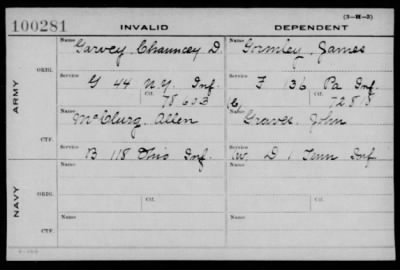 (3-H-3)
100281 INVALID DEPENDENT
Name Name
Garvey, Chauncey D. Gormley, James
ORIG.
Service Service
G 44 N.Y. Inf. F 136 Pa Inf.
Ctf. Ctf.
78603 72818
ARMY
Name Name
McClurg, Allen Graves, John
CTF.
Service Service
B 118 Ohio Inf. W. D 1 Tenn Inf.
Name Name
ORIG.
Service Ctf. Service Ctf.
NAVY
Name Name
CTF.
Service Service